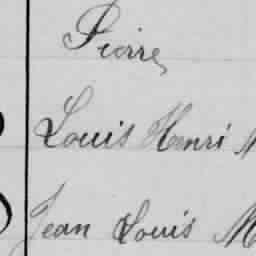 Pierre
Louis Henri
Jean Louis M